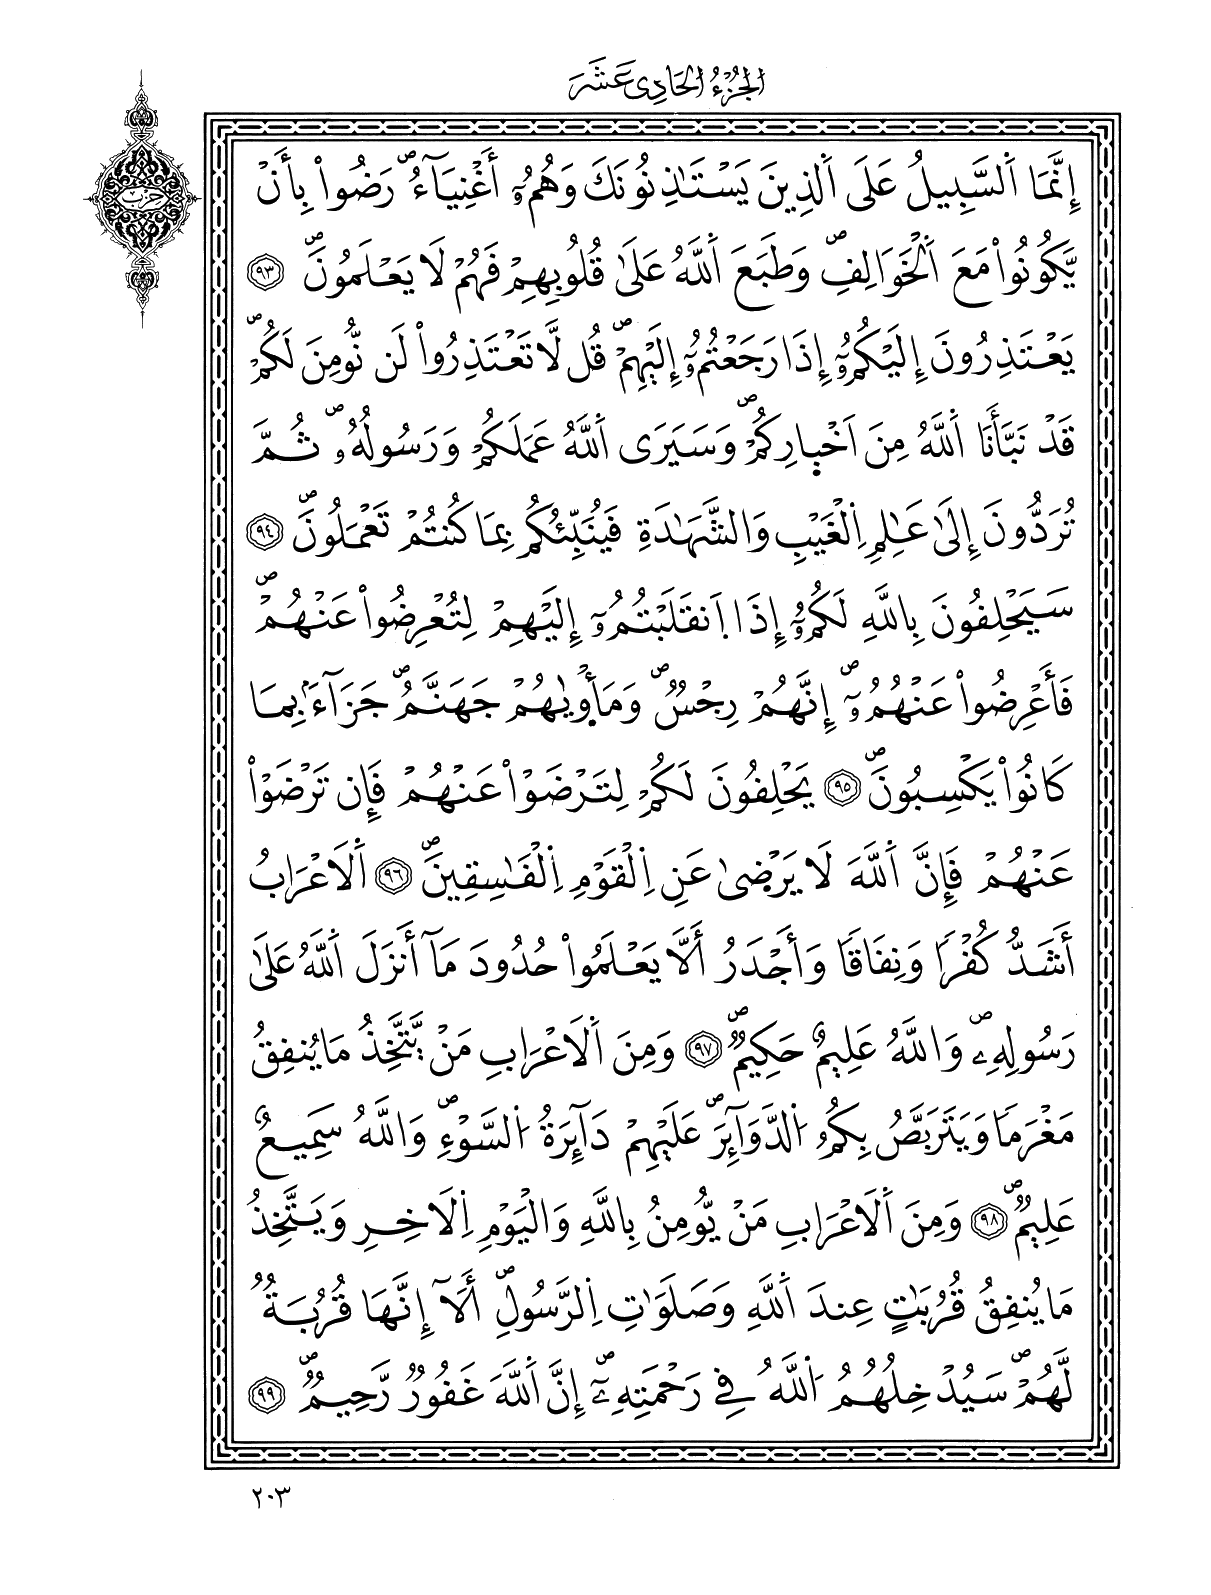 الجُزْءُ الحَادِى عَشَرَ
حزب
إِنَّمَا اَ۬لسَّبِيلُ عَلَى اَ۬لذِينَ يَسْتَٰذِنُونَكَ وَهُمُۥٓ أَغْنِيَآءُۖ رَضُواْ بِأَنْ
يَّكُونُواْ مَعَ اَ۬لْخَوَالِفِۖ وَطَبَعَ اَ۬للَّهُ عَلَىٰ قُلُوبِهِمْ فَهُمْ لَا يَعْلَمُونَۖ ٩٣
يَعْتَذِرُونَ إِلَيْكُمُۥٓ إِذَا رَجَعْتُمُۥٓ إِلَيْهِمْۖ قُل لَّا تَعْتَذِرُواْ لَن نُّومِنَ لَكُمْۖ
قَدْ نَبَّأَنَا اَ۬للَّهُ مِنَ اَخْبِارِكُمْۖ وَسَيَرَى اَ۬للَّهُ عَمَلَكُمْ وَرَسُولُهُۥۖ ثُمَّ
تُرَدُّونَ إِلَىٰ عَٰلِمِ اِ۬لْغَيْبِ وَالشَّهَٰدَةِ فَيُنَبِّئُكُم بِمَا كُنتُمْ تَعْمَلُونَۖ ٩٤
سَيَحْلِفُونَ بِاللَّهِ لَكُمُۥٓ إِذَا اَ۪نقَلَبْتُمُۥٓ إِلَيْهِمْ لِتُعْرِضُواْ عَنْهُمْۖ
فَأَعْرِضُواْ عَنْهُمُۥٓۖ إِنَّهُمْ رِجْسٌۖ وَمَأْو۪ىٰهُمْ جَهَنَّمُۖ جَزَآءَۢ بِمَا
كَانُواْ يَكْسِبُونَۖ ٩٥ يَحْلِفُونَ لَكُمْ لِتَرْضَوْاْ عَنْهُمْ فَإِن تَرْضَوْاْ
عَنْهُمْ فَإِنَّ اَ۬للَّهَ لَا يَرْضۭىٰ عَنِ اِ۬لْقَوْمِ اِ۬لْفَٰسِقِينَۖ ٩٦ اَ۬لَاعْرَابُ
أَشَدُّ كُفْراٗ وَنِفَاقاٗ وَأَجْدَرُ أَلَّا يَعْلَمُواْ حُدُودَ مَآ أَنزَلَ اَ۬للَّهُ عَلَىٰ
رَسُولِهِۦۖ وَاللَّهُ عَلِيمٌ حَكِيمٞۖ ٩٧ وَمِنَ اَ۬لَاعْرَابِ مَنْ يَّتَّخِذُ مَا يُنفِقُ
مَغْرَماٗ وَيَتَرَبَّصُ بِكُمُ اُ۬لدَّوَآئِرَۖ عَلَيْهِمْ دَآئِرَةُ اُ۬لسَّوْءِۖ وَاللَّهُ سَمِيعٌ
عَلِيمٞۖ ٩٨ وَمِنَ اَ۬لَاعْرَابِ مَنْ يُّومِنُ بِاللَّهِ وَالْيَوْمِ اِ۬لَاخِرِ وَيَتَّخِذُ
مَا يُنفِقُ قُرُبَٰتٍ عِندَ اَ۬للَّهِ وَصَلَوَٰتِ اِ۬لرَّسُولِۖ أَلَآ إِنَّهَا قُرُبَةٞ
لَّهُمْۖ سَيُدْخِلُهُمُ اُ۬للَّهُ فِے رَحْمَتِهِۦٓۖ إِنَّ اَ۬للَّهَ غَفُورٞ رَّحِيمٞۖ ٩٩
٢٠٣